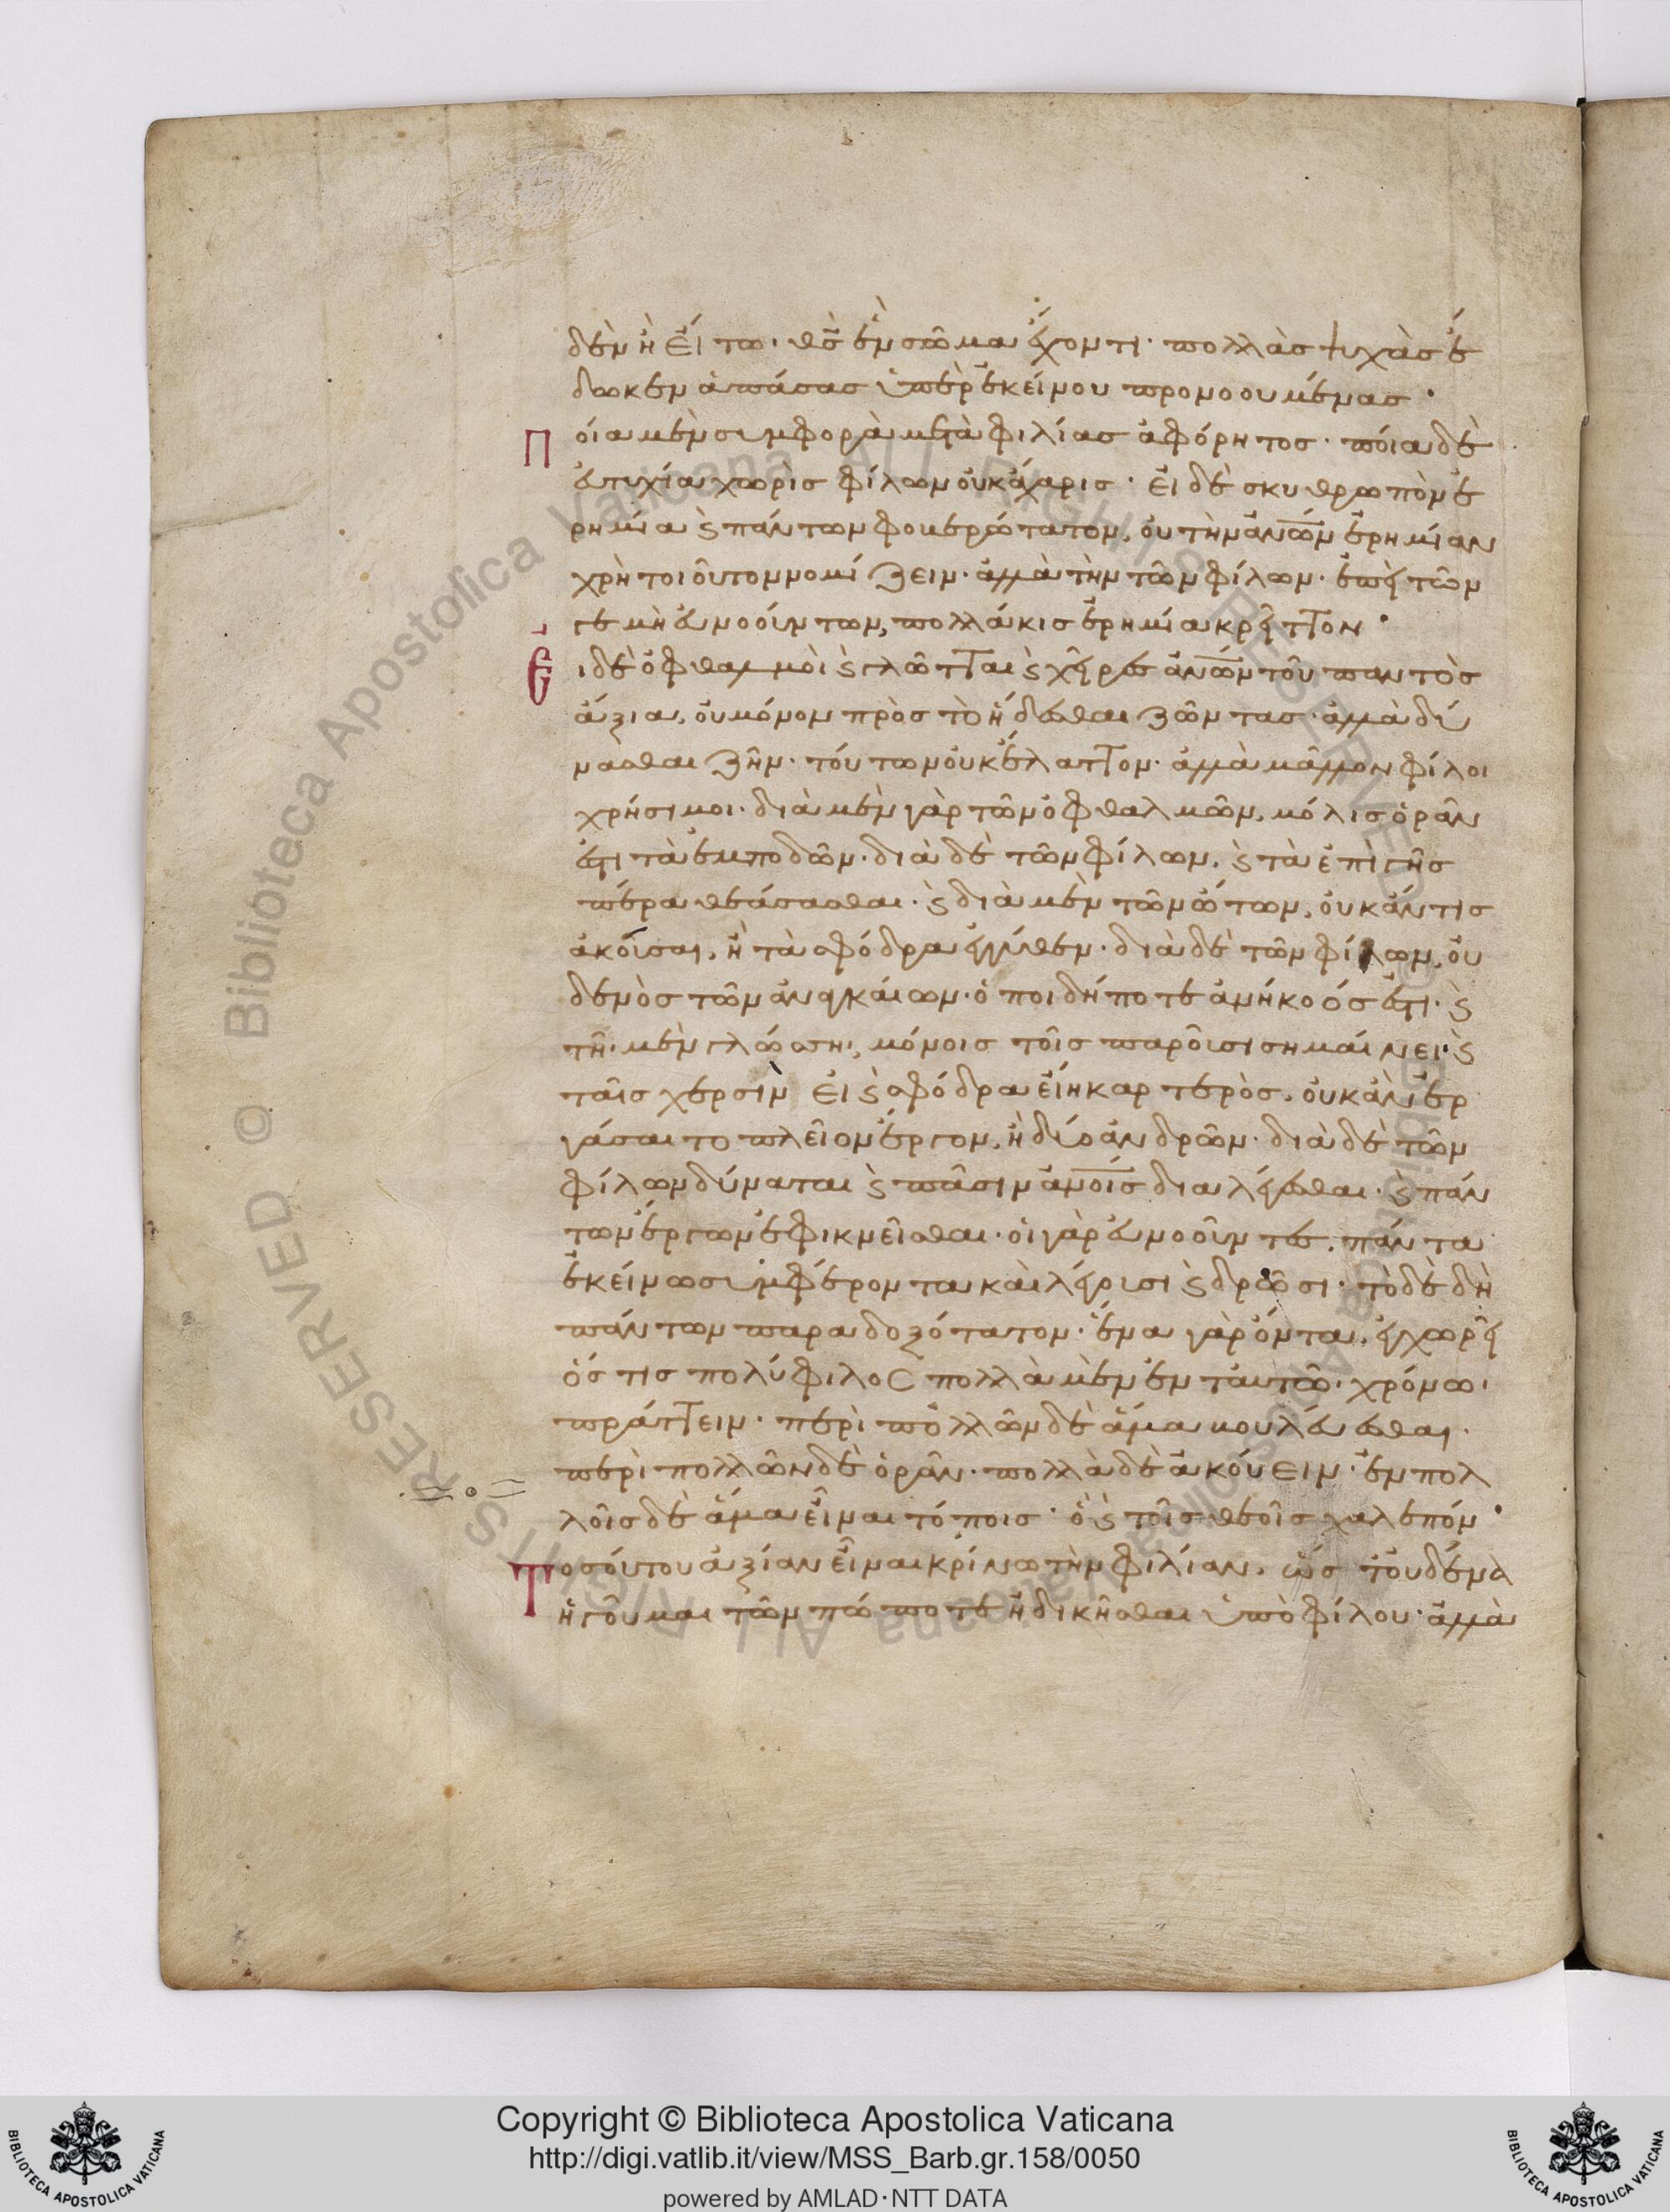 δὲν ἢ εἴ τω· θ̅ς̅ ἓν σῶμα ἔχοντι· πολλὰσ ψυχὰσ ἔ
δωκεν ἁπάσασ ὑπὲρ ἐκείνου προνοουμένασ·
Ποία μὲν συμφορὰ μετὰ φιλίασ ἀφόρητοσ· ποία δὲ
εὐτυχία χωρὶσ φίλων οὐκ ἄχαρισ· εἰ δὲ σκυθρωπὸν ἐ
ρημία ϛ πάντων φοβερώτατον, οὐ τὴν ἀν̅ω̅ν ἐρημίαν
χρὴ τοιοῦτον νομίζειν· ἀλλὰ τὴν τῶν φίλων· ἐπεὶ τῶν
γε μὴ εὐνοούντων, πολλάκισ ἐρημία κρεῖττον·
Εἰ δὲ ὀφθαλμοὶ ϛ γλῶτται ϛ χεῖρεσ ἀν̅ω̅ν τοῦ παντὸσ
ἄξιαι, οὐ μόνον πρὸσ τὸ ἥδεσθαι ζῶντασ· ἀλλὰ δύ
νασθαι ζῆν· τούτων οὐκ ἔλαττον· ἀλλὰ μᾶλλον φίλοι
χρήσιμοι· διὰ μὲν γὰρ τῶν ὀφθαλμῶν, μόλισ ὁρᾶν
ἔστι τὰ ἐμποδῶν· διὰ δὲ τῶν φίλων, ϛ τὰ ἐπὶ γῆσ
πέρα θεάσασθαι· ϛ διὰ μὲν τῶν ὤτων, οὐκ ἄν τισ
ἀκούσαι, ἢ τὰ σφόδρα ἐγγύθεν· διὰ δὲ τῶν φίλων, οὐ
δενὸσ τῶν ἀναγκαίων· ὁποιδήποτε ἀνήκοόσ ἐστι· ϛ
τῆι μὲν γλώσσηι, μόνοισ τοῖσ παροῦσι σημαίνει· ϛ
ταῖσ χερσὶν εἰ ϛ σφόδρα εἴη καρτερὸσ, οὐκ ἂν ἐρ
γάσαιτο πλεῖον ἔργον, ἢ δύο ἀνδρῶν· διὰ δὲ τῶν
φίλων δύναται ϛ πᾶσιν ἀν̅ο̅ισ διαλέγεσθαι· ϛ πάν
των ἔργων ἐφικνεῖσθαι· οἱ γὰρ εὐνοοῦντεσ, πάντα
ἐκείνω συμφέροντα καὶ λέγουσι ϛ δρῶσι· τὸ δὲ δὴ
πάντων παραδοξότατον· ἕνα γὰρ ὄντα, ἐγχωρεῖ
ὅστισ πολύφιλοσ πολλὰ μὲν ἐν ταυτῶι χρόνωι
πράττειν· περὶ πολλῶν δὲ ἅμα βουλεύεσθαι·
περὶ πολλῶν δὲ ὁρᾶν· πολλὰ δὲ ἀκούειν· ἐν πολ
λοῖσ δὲ ἅμα εἶναι τόποισ· ὃ ϛ τοῖσ θεοῖσ χαλεπόν·
Τοσούτου ἀξίαν εἶναι κρίνω τὴν φιλίαν, ὥσ τ' οὐδένα
ἡγοῦμαι τῶν πώποτε ἠδικῆσθαι ὑπὸ φίλου· ἀλλὰ
Copyright © Biblioteca Apostolica Vaticana
http://digi.vatlib.it/view/MSS_Barb.gr.158/0050
powered by AMLAD·NTT DATA
BIBLIOTECA APOSTOLICA VATICANA
BIBLIOTECA APOSTOLICA VATICANA